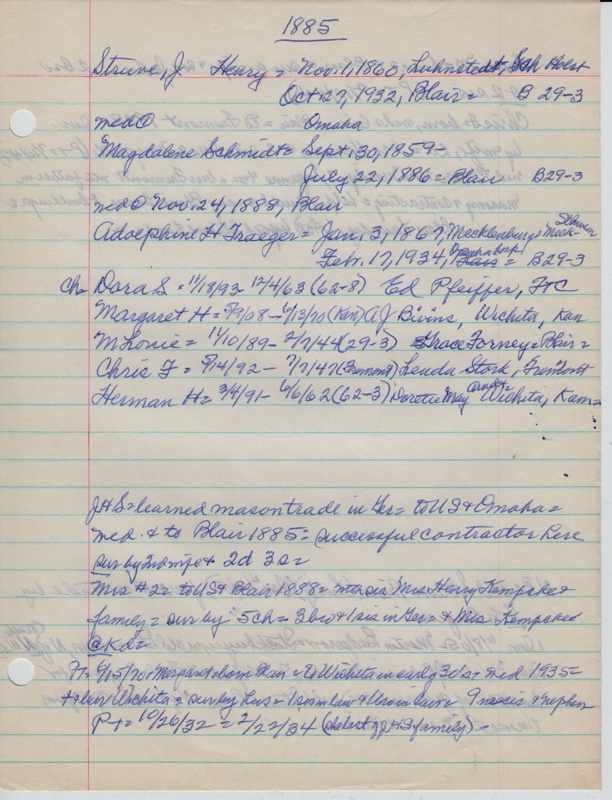 1885
Struve, J. Henry = Nov. 1, 1860, Luhnstedt, Sch Holst
Oct 27, 1932, Blair = B 29-3
med @ Omaha
Magdalene Schmidt = Sept. 30, 1859 -
July 22, 1886 = Blair B29-3
med @ Nov. 24, 1888, Blair
Adolphine H Traeger = Jan, 3, 1867, Mecklenburg =
Feb. 17, 1934, Omaha hosp = B29-3
Ch = Dora S = 11/18/93 - 12/4/63 (62-8) Ed Pfeiffer, FtC
Margaret H = 5/9/08 - 6/13/70 (Kan) A J Bivins, Wichita, Kan
M Lonie = 11/10/89 - 2/7/44 (29-3) Grace Forney = Blair =
Chris F = 5/14/92 - 7/7/47 (Fremont) Leuda Stork, Fremont
Herman H = 3/4/91 - 6/6/62 (62-3) Dorothe May Wichita, Kan =
JHS = learned mason trade in Ger = to US & Omaha =
med. & to Blair 1885 = successful contractor here
sur by 2nd wife & 2d 3s =
Mrs #2 = to US & Blair 1888 = sis Mrs Henry Kempcke &
family = sur by 5ch = 3bro & 1 sis in Ger = & Mrs Kempcke
@ Kd =
Ft = 6/15/70 = Margaret born Blair = to Wichita in early 30's = med 1935 =
Wichita = sur by hus = 1 sis in law & 9 nieces & nephew
Pt = 10/26/32 = 2/22/34 (the last of JHS family) -